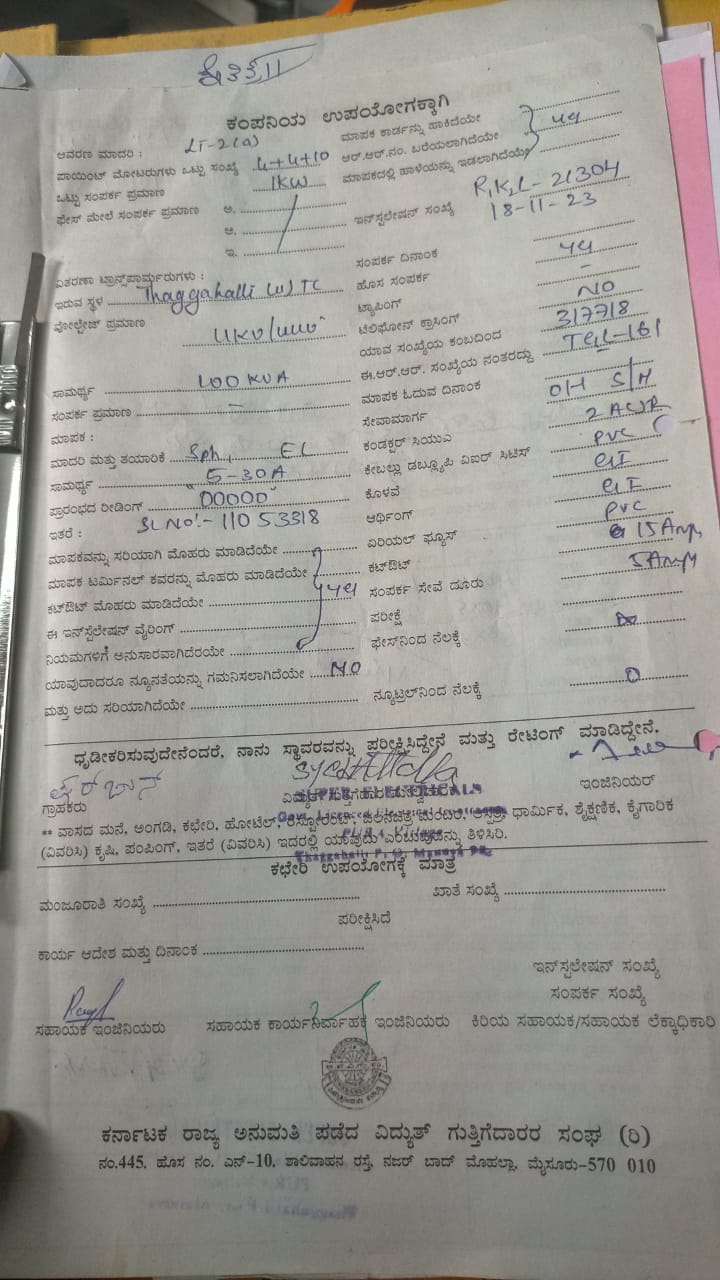 ಕಂಪನಿಯ ಉಪಯೋಗಕ್ಕಾಗಿ
ಆವರಣ ಮಾದರಿ : LT-2(a)
ಪಾಯಿಂಟ್ ಮೋಟರುಗಳು ಒಟ್ಟು ಸಂಖ್ಯೆ 4+4+10
ಒಟ್ಟು ಸಂಪರ್ಕ ಪ್ರಮಾಣ 1KW
ಫೇಸ್ ಮೇಲೆ ಸಂಪರ್ಕ ಪ್ರಮಾಣ ಅ.
ಆ.
ಇ.
ವಿತರಣಾ ಟ್ರಾನ್ಸ್‌ಪಾರ್ಮರುಗಳು :
ಇರುವ ಸ್ಥಳ Thaggahalli (V) TC
ವೋಲ್ಟೇಜ್ ಪ್ರಮಾಣ
ಸಾಮರ್ಥ್ಯ 100 KVA
ಸಂಪರ್ಕ ಪ್ರಮಾಣ –
ಮಾಪಕ :
ಮಾದರಿ ಮತ್ತು ತಯಾರಿಕೆ Sph, EL
ಸಾಮರ್ಥ್ಯ "5-30A
ಪ್ರಾರಂಭದ ರೀಡಿಂಗ್ "00000"
ಇತರೆ : SL No:- 11053318
ಮಾಪಕವನ್ನು ಸರಿಯಾಗಿ ಮೊಹರು ಮಾಡಿದೆಯೇ
ಮಾಪಕ ಟರ್ಮಿನಲ್ ಕವರನ್ನು ಮೊಹರು ಮಾಡಿದೆಯೇ
ಕಟ್‌ಔಟ್ ಮೊಹರು ಮಾಡಿದೆಯೇ
ಈ ಇನ್‌ಸ್ಟಲೇಷನ್ ವೈರಿಂಗ್
ನಿಯಮಗಳಿಗೆ ಅನುಸಾರವಾಗಿದೆರಯೇ
ಯಾವುದಾದರೂ ನ್ಯೂನತೆಯನ್ನು ಗಮನಿಸಲಾಗಿದೆಯೇ NO
ಮತ್ತು ಅದು ಸರಿಯಾಗಿದೆಯೇ
ಮಾಪಕ ಕಾರ್ಡನ್ನು ಹಾಕಿದೆಯೇ
ಆರ್.ಆರ್.ನಂ. ಬರೆಯಲಾಗಿದೆಯೇ
ಮಾಪಕದಲ್ಲಿ ಹಾಳೆಯನ್ನು ಇಡಲಾಗಿದೆಯೇ
ಇನ್‌ಸ್ಟಲೇಷನ್ ಸಂಖ್ಯೆ R,K,L- 21304
18-11-23
ಸಂಪರ್ಕ ದಿನಾಂಕ
ಹೊಸ ಸಂಪರ್ಕ
ಟ್ಯಾಪಿಂಗ್ –
ಟೆಲಿಫೋನ್ ಕ್ರಾಸಿಂಗ್ NO
ಯಾವ ಸಂಖ್ಯೆಯ ಕಂಬದಿಂದ 3/7/7/8
ಈ.ಆರ್.ಆರ್. ಸಂಖ್ಯೆಯ ನಂತರದ್ದು TGL-161
ಮಾಪಕ ಓದುವ ದಿನಾಂಕ
ಸೇವಾಮಾರ್ಗ OH
ಕಂಡಕ್ಟರ್ ಸಿಯುಎ
ಕೇಬಲ್ಲು ಡಬ್ಲ್ಯೂಪಿ ವಿಐರ್ ಸಿಟಿಸ್ PVC
ಕೊಳವೆ GI
ಆರ್ಥಿಂಗ್ GI
ಏರಿಯಲ್ ಫ್ಯೂಸ್ PVC
ಕಟ್‌ಔಟ್ 15 Amps
ಸಂಪರ್ಕ ಸೇವೆ ದೂರು 5 Amps
ಪರೀಕ್ಷೆ
ಫೇಸ್‌ನಿಂದ ನೆಲಕ್ಕೆ
ನ್ಯೂಟ್ರಲ್‌ನಿಂದ ನೆಲಕ್ಕೆ 0
ಧೃಡೀಕರಿಸುವುದೇನೆಂದರೆ, ನಾನು ಸ್ಥಾವರವನ್ನು ಪರೀಕ್ಷಿಸಿದ್ದೇನೆ ಮತ್ತು ರೇಟಿಂಗ್ ಮಾಡಿದ್ದೇನೆ.
ಗ್ರಾಹಕರು
SUPER ELECTRICALS
ಇಂಜಿನಿಯರ್
** ವಾಸದ ಮನೆ, ಅಂಗಡಿ, ಕಛೇರಿ, ಹೋಟೆಲ್, ಆಸ್ಪತ್ರೆ, ಧಾರ್ಮಿಕ, ಶೈಕ್ಷಣಿಕ, ಕೈಗಾರಿಕ
(ವಿವರಿಸಿ) ಕೃಷಿ, ಪಂಪಿಂಗ್, ಇತರೆ (ವಿವರಿಸಿ) ಇದರಲ್ಲಿ ಯಾವುದು ಎಂಬುವುದನ್ನು ತಿಳಿಸಿರಿ.
ಕಛೇರಿ ಉಪಯೋಗಕ್ಕೆ ಮಾತ್ರ
ಮಂಜೂರಾತಿ ಸಂಖ್ಯೆ ಖಾತೆ ಸಂಖ್ಯೆ
ಪರೀಕ್ಷಿಸಿದೆ
ಕಾರ್ಯ ಆದೇಶ ಮತ್ತು ದಿನಾಂಕ
ಇನ್‌ಸ್ಪಲೇಷನ್ ಸಂಖ್ಯೆ
ಸಂಪರ್ಕ ಸಂಖ್ಯೆ
ಸಹಾಯಕ ಇಂಜಿನಿಯರು ಸಹಾಯಕ ಕಾರ್ಯನಿರ್ವಾಹಕ ಇಂಜಿನಿಯರು ಕಿರಿಯ ಸಹಾಯಕ/ಸಹಾಯಕ ಲೆಕ್ಕಾಧಿಕಾರಿ
ಕರ್ನಾಟಕ ರಾಜ್ಯ ಅನುಮತಿ ಪಡೆದ ವಿದ್ಯುತ್ ಗುತ್ತಿಗೆದಾರರ ಸಂಘ (ರಿ)
ನಂ.445, ಹೊಸ ನಂ. ಎನ್-10, ಶಾಲಿವಾಹನ ರಸ್ತೆ, ನಜರ್ ಬಾದ್ ಮೊಹಲ್ಲಾ, ಮೈಸೂರು-570 010